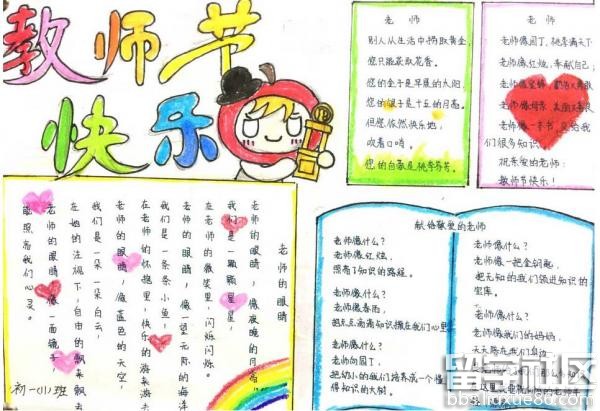 教师节
快乐
老师
别人从生活中捞取黄金,
您只能获取花香。
您的金子是早晨的太阳,
您的银子是十五的月亮。
但您依然快乐地,
吹着口哨。
您的白歌是桃李芬芳。
老师
老师像园丁,桃李满天下
老师像红烛,奉献自己;
老师像
老师像
老师像一本书,教给我
们很多知识。
祝亲爱的老师:
教师节快乐!
老师的眼睛
老师的眼睛,像夜晚的月亮,
我们是一颗颗星星,
在老师的微笑里,闪烁闪烁。
老师的眼睛,像一望无际的海洋
我们是一条条小鱼,
在老师的怀抱里,快乐的游来游去
老师的眼睛,像蓝色的天空,
我们是一朵一朵白云,
在她的注视下,自由的飘来飘去
老师的眼睛,像一面镜子,
照亮着我们心灵。
初一(1)班
献给敬爱的老师
老师像什么?
老师像红烛,
照亮了知识的路程。
老师像什么?
老师像春雨,
把点点滴滴知识撒在我们心里
老师像什么?
老师像园丁,
把幼小的我们培养成一个懂
得知识的大树。
老师像什么?
老师像一把金钥匙,
把无知的我们领进知识的
宝库。
老师像什么?
老师像我们的妈妈,
天天陪在我们身边,
这里
bbs.liuxue86.com